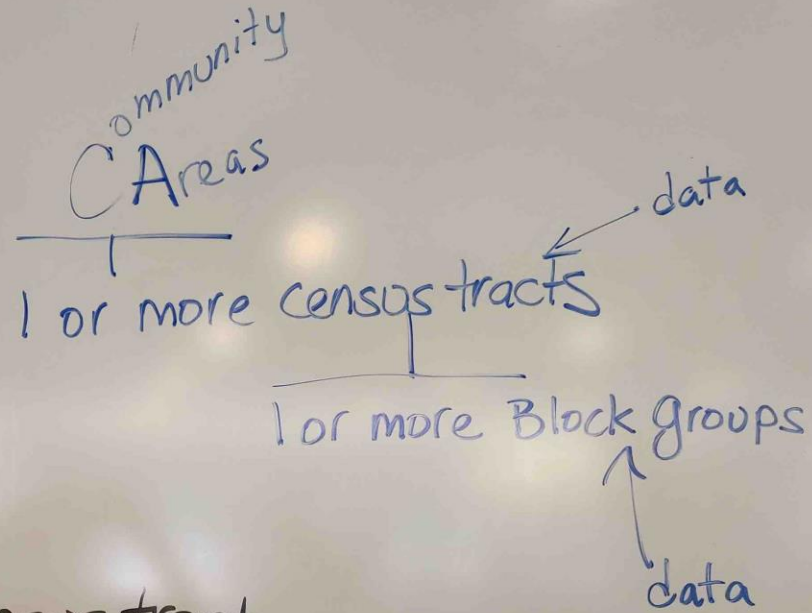 Community
CAreas
data
1 or more census tracts
1 or more Block groups
data